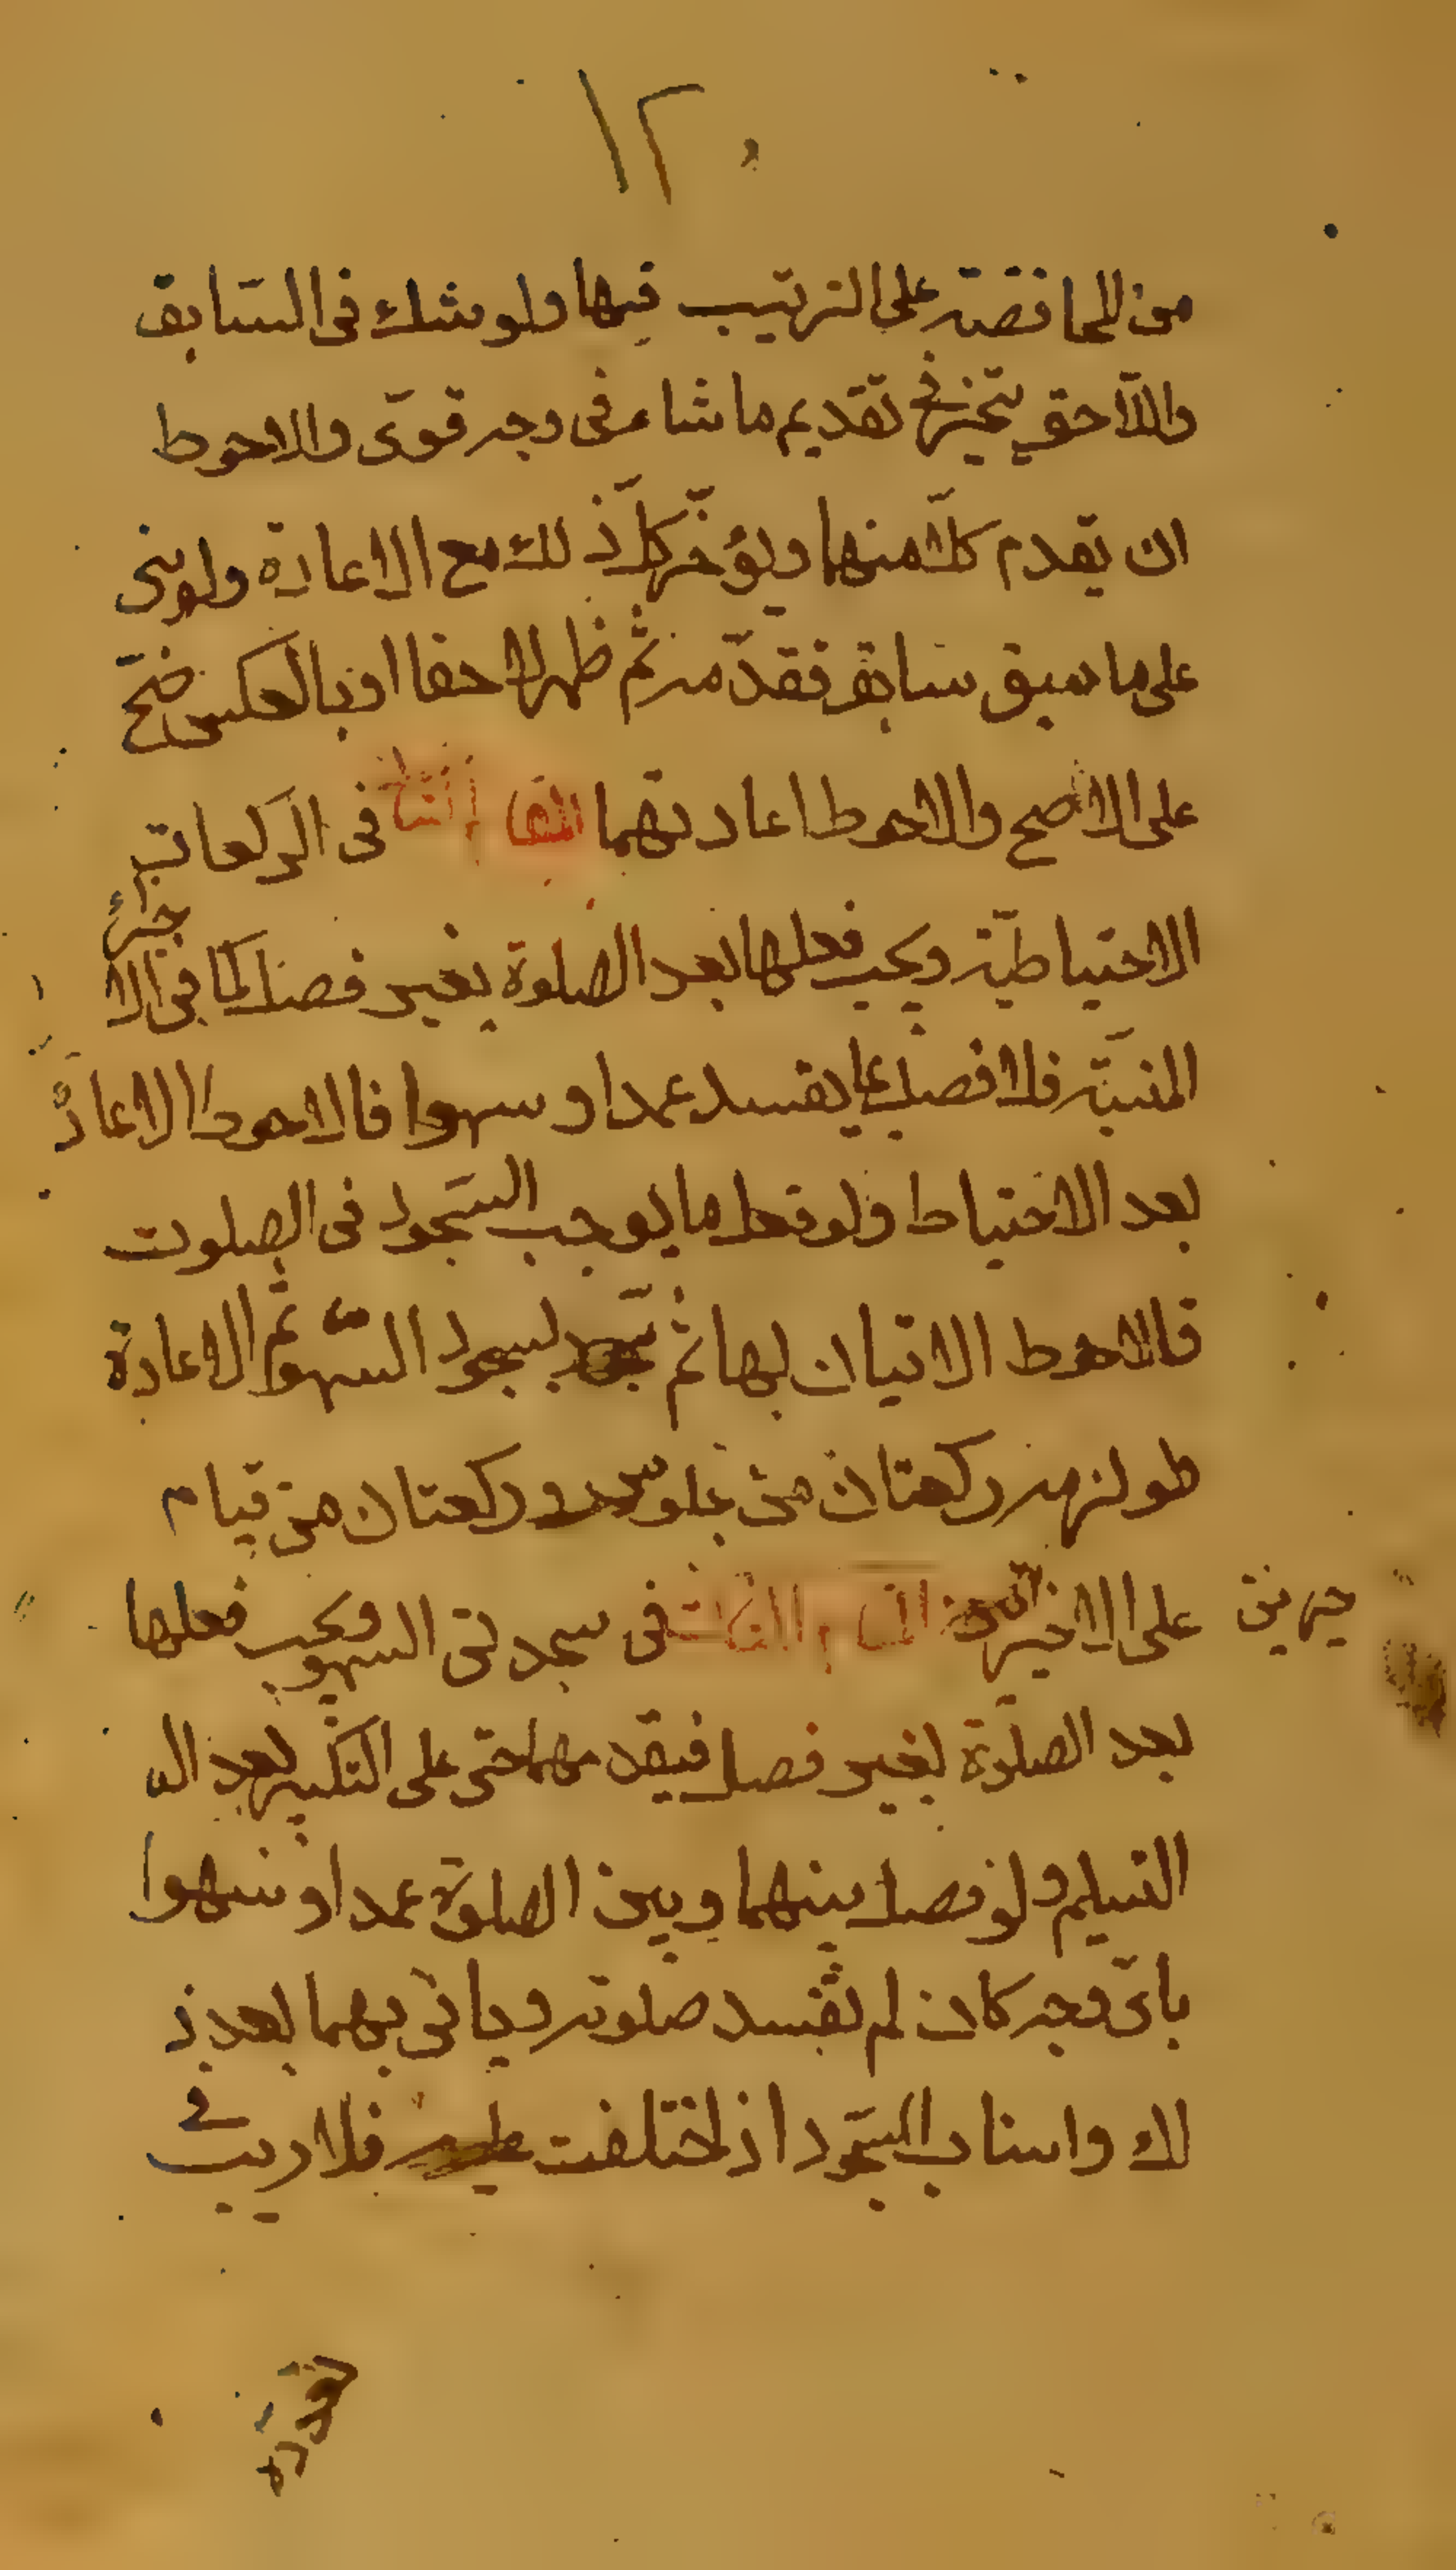 ١٢٠
من المحافضة على الترتيب فيها ولو شك فى السّابق
واللّاحق يتخيّر فى تقديم ما شاء فى وجه قوىّ والاحوط
ان يقدم كلّا منها ويؤخّر كلّ ذلك مع الاعادة ولو بنى
على ما سبق سابق فقدّمه ثم ظهر لاحقا او بالعكس صحّ
على الاصح والاحوط اعادتهما المقام الثانى فى الركعات
الاحتياطيّة ويجب فعلها بعد الصلوة بغير فصل كما فى الا
جزاء
المنسيّة فلا فصل بما يفسد عمدا و سهوا فالاحوط الاعادة
بعد الاحتياط ولو فعل ما يوجب السّجود فى الصلوت
فالاحوط الاتيان بها ثم بسجود السّهو ثم الاعادة
طو لزمه ركعتان من جلوس و ركعتان من قيام
على الاخير المقام الثالث فى سجدتى السهو ويجب فعلها
بعد الصلوة بغير فصل فيقدمهما حتى على التكبير بعد ال
التسليم ولو فصل بينهما وبين الصلوة عمدا و سهوا
باىّ وجه كان لم تفسد صلوته وياتى بهما بعد ذ
لك واسباب السّجود اذ اختلفت فلا ريب فى